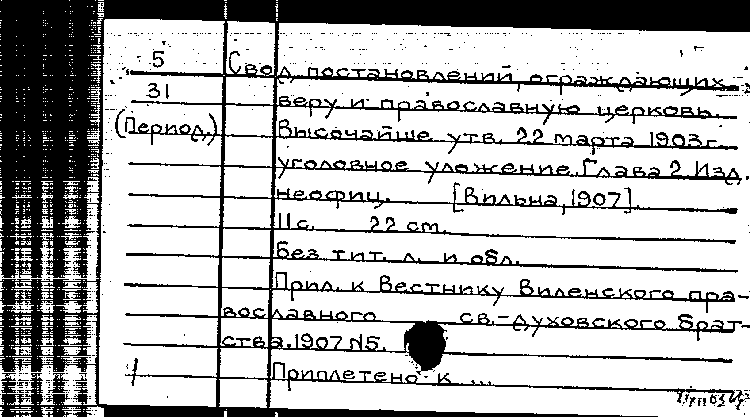 5 Свод постановлений, ограждающих
31 веру и православную церковь.
(Период.) Высочайше утв. 22 марта 1903 г.
уголовное уложение. Глава 2. Изд.
неофиц. [Вильна, 1907].
11 с. 22 см.
Без тит. л. и обл.
Прил. к Вестнику Виленского пра-
вославного св.-духовского брат-
ства. 1907 N5.
Приплетено к ...